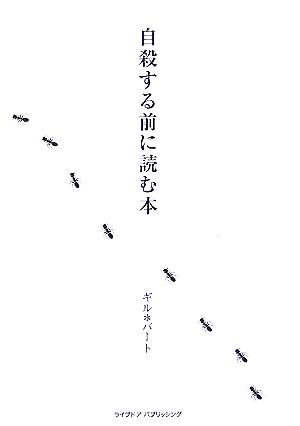 自殺する前に読む本
ギル＊バート
ライブドア パブリッシング